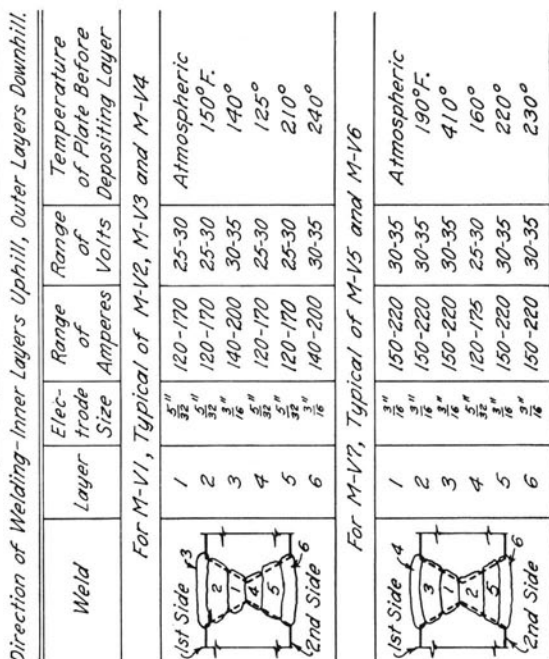 Direction of Welding-Inner Layers Uphill, Outer Layers Downhill.
Weld Layer Elec- Range Range Temperature
trode of of of Plate Before
Size Amperes Volts Depositing Layer
For M-V1, Typical of M-V2, M-V3 and M-V4
1st Side 3
2 1 4 5
2nd Side 6
1 5/32" 120-170 25-30 Atmospheric
2 5/32" 120-170 25-30 150°F.
3 3/16" 140-200 30-35 140°
4 5/32" 120-170 25-30 125°
5 5/32" 120-170 25-30 210°
6 3/16" 140-200 30-35 240°
For M-V7, Typical of M-V5 and M-V6
1st Side 4
3 1 2 5
2nd Side 6
1 3/16" 150-220 30-35 Atmospheric
2 3/16" 150-220 30-35 190°F.
3 3/16" 150-220 30-35 410°
4 5/32" 120-175 25-30 160°
5 3/16" 150-220 30-35 220°
6 3/16" 150-220 30-35 230°